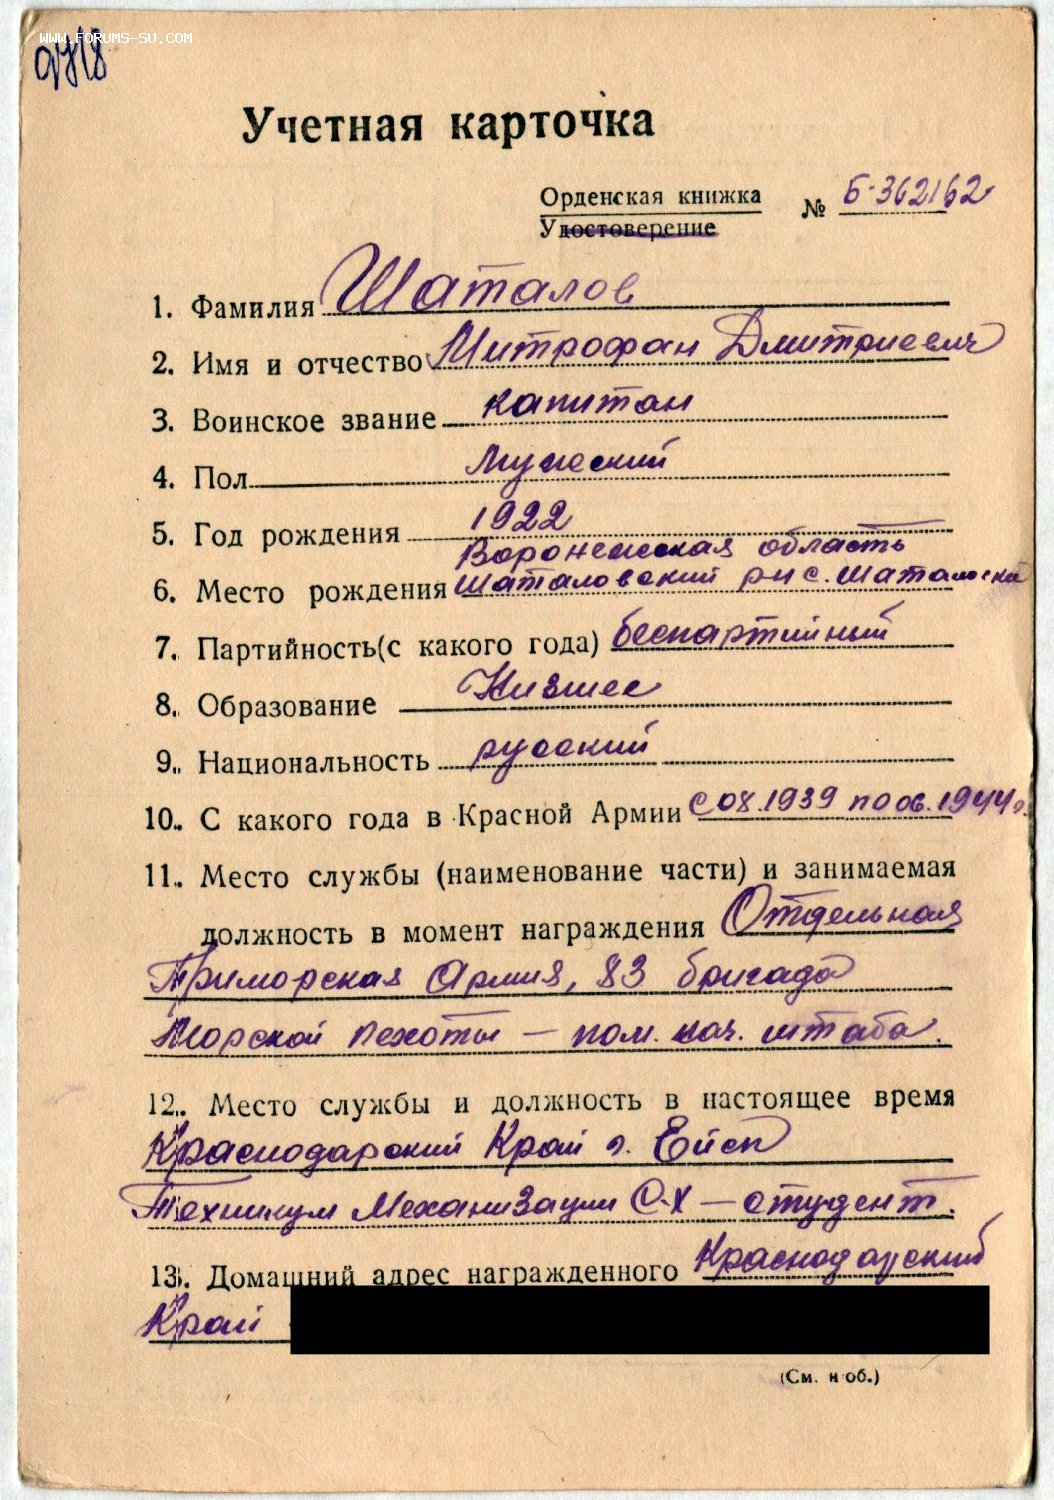 www.forums-su.com
Учетная карточка
Орденская книжка
Удостоверение
№ Б-362162
1. Фамилия Шаталов
2. Имя и отчество Митрофан Дмитриевич
3. Воинское звание капитан
4. Пол мужский
5. Год рождения 1922
Воронежская область
6. Место рождения Шаталовский р-н с. Шаталовка
7. Партийность (с какого года) беспартийный
8. Образование Низшее
9. Национальность русский
10. С какого года в Красной Армии с 08.1939 по 06.1944 г.
11. Место службы (наименование части) и занимаемая
должность в момент награждения Отдельная
Приморская Армия, 83 бригада
Морской пехоты — пом. нач. штаба.
12. Место службы и должность в настоящее время
Краснодарский Край г. Ейск
Техникум Механизации С-Х — студент.
13. Домашний адрес награжденного Краснодарский
Край
(См. н об.)